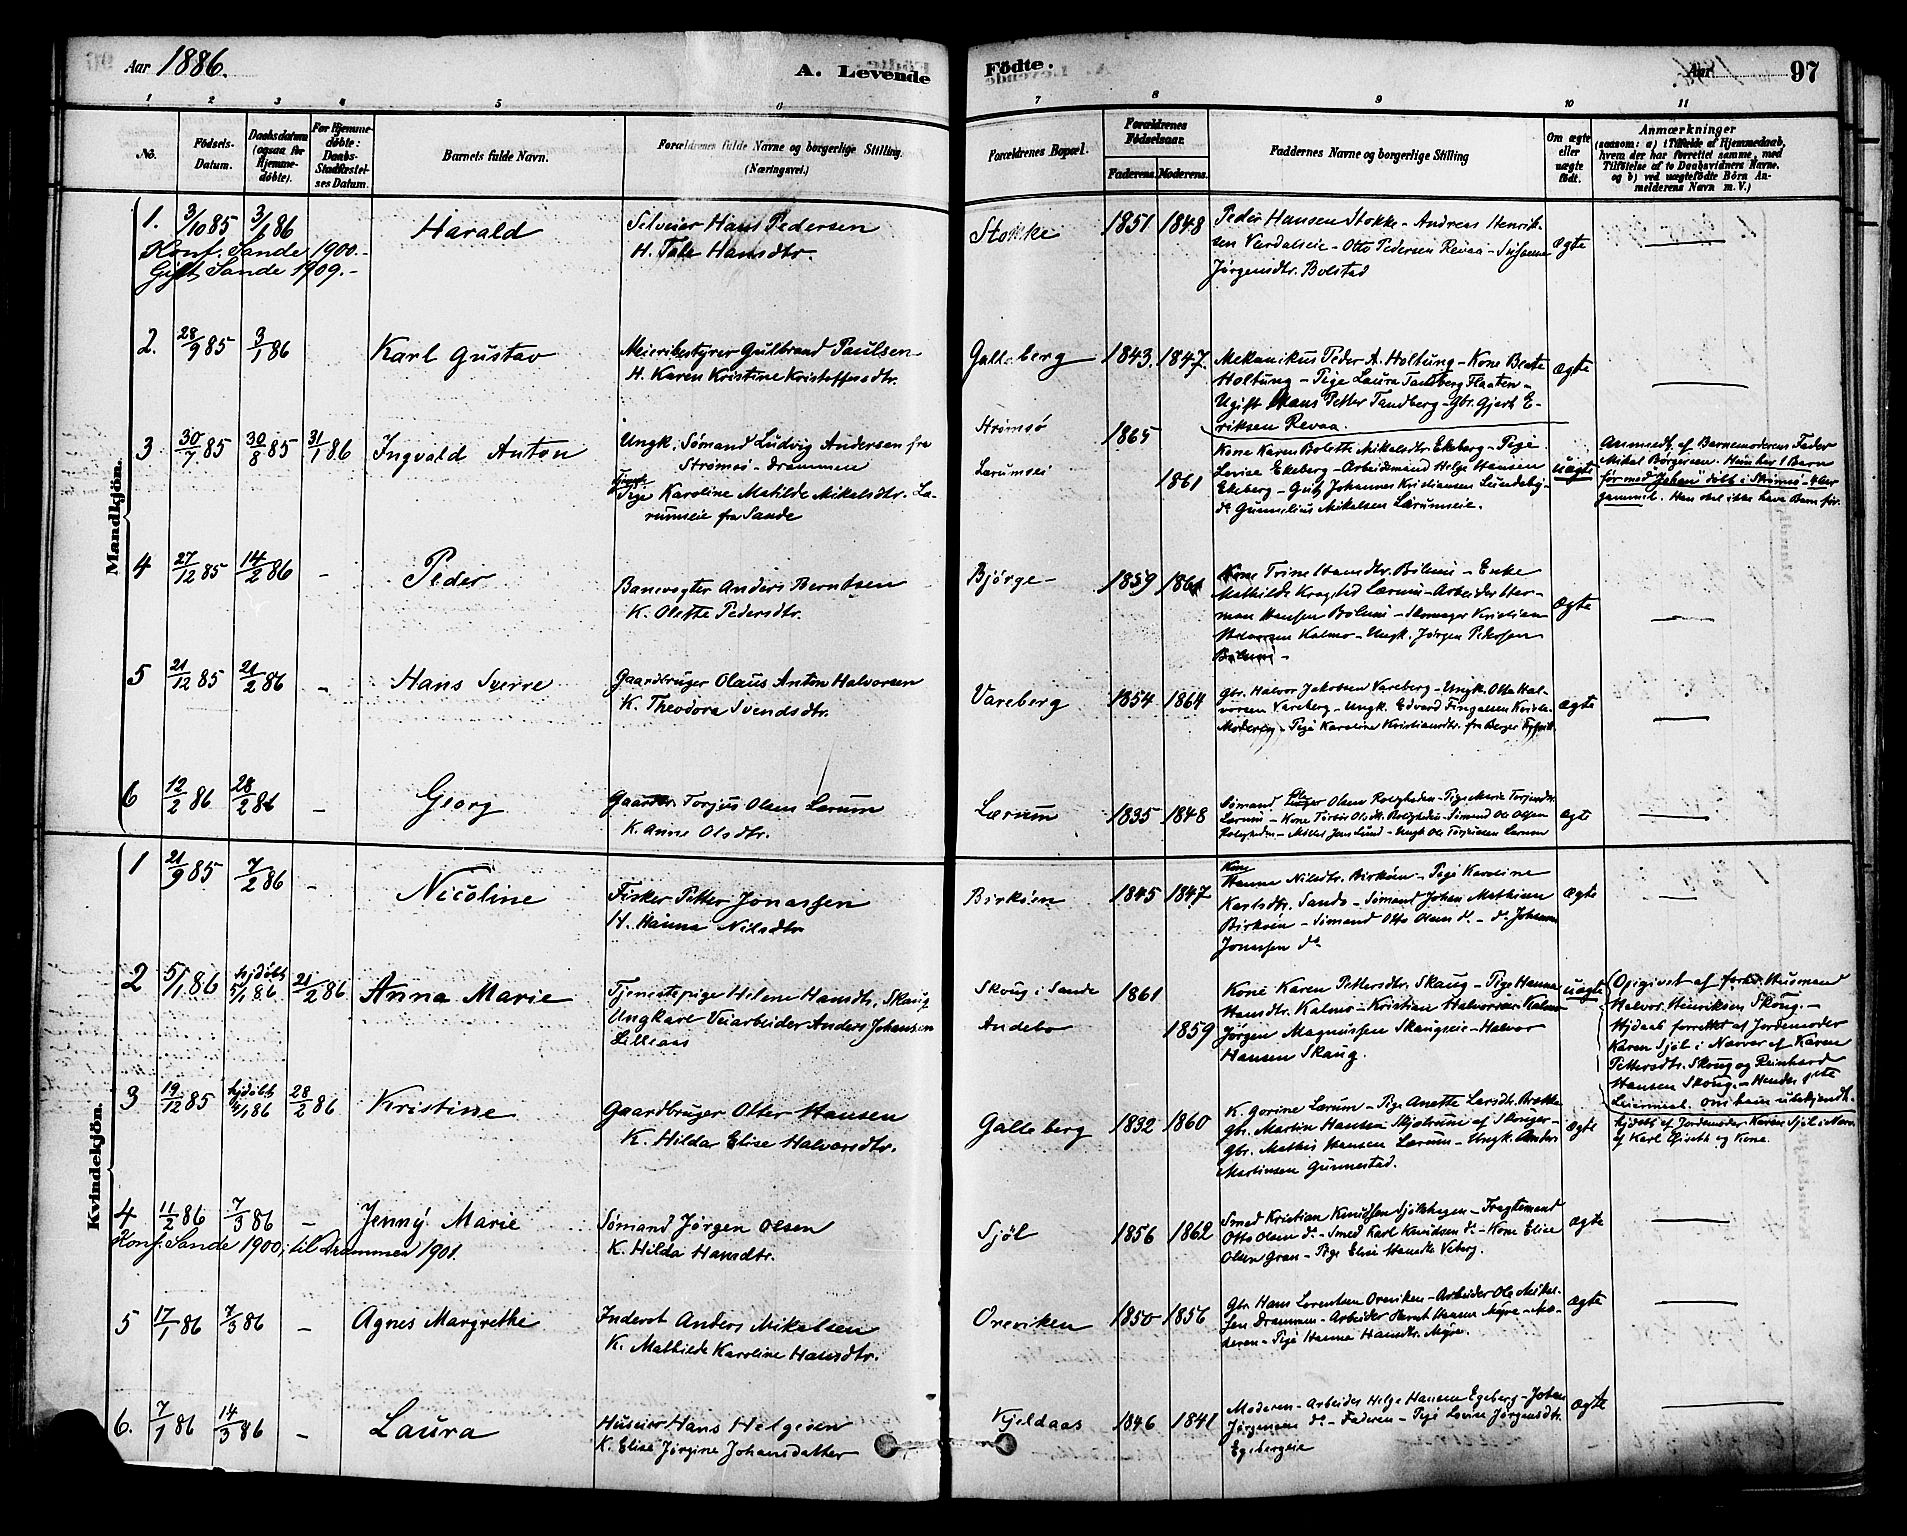 Aar 1886.
A. Levende
Födte.
Aar
97
1 2 3 4 5 6 7 8 9 10 11
No.
Födsels-
Datum.
Daabsdatum
(ogsaa for
Hjemme-
döbte).
For Hjemme-
döbte:
Daabs-
Stadfæstel-
ses Datum.
Barnets fulde Navn.
Forældrenes fulde Navne og borgerlige Stilling.
(Næringsvei.)
Forældrenes Bopæl.
Forældrenes
Födselsaar.
Faderens. Moderens.
Faddernes Navne og borgerlige Stilling
Om ægte
eller
uægte
födt.
Anmærkninger
(saasom: a) i Tilfælde af Hjemmedaab,
hvem der har forrettet samme, med
Tilföielse af to Daabsvidners Navne.
og b) ved uægtefödte Börn An-
melderens Navn m. V.)
Mandkjön.
1. 3/10 85 3/1 86 Harald
Konf. Sande 1900.-
Gift Sande 1909.-
Selveier Hans Pedersen
H. Tale Hansdtr.
Stokke 1851 1848
Peder Hansen Stokke - Andreas Henrik-
sen Verdalseie - Otto Pedersen Revaa - Susanne
Jørgensdtr. Bolstad
ægte
2. 28/9 85 3/1 86 Karl Gustav
Meieribestyrer Gulbrand Paulsen
H. Karen Kristine Kristoffersdtr.
Galleberg 1843. 1847.
Mekanikus Peder A. Holtung - Kone Beate
Holtung - Pige Laura Tandberg Flaaten -
Ugift Hans Petter Tandberg - Gbr. Gjert E-
riksen Revaa.
ægte
3 30/7 85 30/8 85 31/1 86 Ingvald Anton
Ungk. Sømand Ludvig Andersen fra
Strømsø - Drammen
Pige Karoline Matilde Mikelsdtr. Læ-
rumseie fra Sande
Strømsø 1865
Lærumseie 1861
Kone Karen Bolette Mikelsdtr. Ekeberg - Pige
Lovise Ekeberg - Arbeidsmand Helge Hansen
Ekeberg - Johannes Kristiansen
do Mikelsen Lærumseie.
uægte
Anmeldt af Barnemoderens Fader
Mikel Borgersen. Hun har 1 Barn
før med Johan døbt i Strømsø - 4 Aar
gammel. Han skal ikke have Barn før.
4 27/12 85 14/2 86 - Peder
Banevogter Anders Berntsen
K. Olette Pedersdtr.
Bjørge - 1859 1861
Kone Trine Hansdtr. - Enke
Mathilde Krogstad Lærum - Arbeider Her-
man Hansen - Skomager Kristian
Halvorsen Kalmo - Ungk. Jørgen Pedersen
ægte
5 21/12 85 21/2 86 - Hans Sverre
Gaardbruger Olaus Anton Halvorsen
K. Theodora Svendsdtr.
Vareberg 1854 1864
Gbr. Halvor Jakobsen Vareberg - Ungk. Otto Hal-
vorsen Vareberg - Ungk. Edvard
Moderen - Pige Karoline Kristiansdtr. fra Berger
ægte
6 12/2 86 28/2 86 - Georg
Gaardbr. Torjus Olsen Lærum
K. Anne Olsdtr.
Lærum 1835 1848
Sømand Olsen Roligheden - Pige Maria Torjusdtr.
Lærum - Kone Olsdtr. Rolighedn - Sømand Ole Olsen
Rolighedn - Jens Lund - Ungk Ole Torjussen Lærum
ægte
Kvindekjön.
1 21/9 85 7/2 86 - Nicoline
Fisker Petter Jonassen
H. Hanna Nilsdtr
Birkøen 1845 1847
Kone
Hanna Nilsdtr. Birkøen - Pige Karoline
Karlsdtr. Sande - Sømand Johan Mathisen
Birkøen - Sømand Otto Olsen do - do Johannes
Jonassen do
ægte
2 5/1 86 hjdöbt 5/1 86 21/2 86 Anna Marie
Tjenestepige Helene Hansdtr. Skaug
Ungkarl Veiarbeider Anders Johansen
Lilleaas
Skoug i Sande 1861
Andebo 1859
Kone Karen Pettersdtr. Skaug - Pige Hanna
Hansdtr. Kalmo - Kristian Halvorsen Kalmo
Jørgen Magnussen Skaugseie - Halvor
Hansen Skaug.
uægte
Opgivet af Husmand
Halvor Henriksen Skoug. -
Hjdaab forrettet af Jordemoder
Karen Sjøl i Nærvær af Karen
Pettersdtr. Skoug og Reinhard
Hansen Skoug. - Hendes 1ste
Leiermaal. Om ham ubekjendt.
3 19/12 85 hjdöbt 28/2 86 Kristine
Gaardbruger Otter Hansen
K. Hilda Elise Halvorsdtr.
Galleberg 1832 1860
K. Gorine Lærum - Pige Anette Larsdtr. Brekke
Gbr. Martin Hansen af Skouger -
Gbr. Mathis Hansen Lærum - Ungk. Anders
Martinsen Gunnestad.
ægte
hjdøbt af Jordemoder Karen Sjøl i Nærv.
af Karl og Kone.
4 11/2 86 7/3 86 - Jenny Marie
Konf. Sande 1900; til Drammen 1901.
Sømand Jørgen Olsen
K. Hilda Hansdtr.
Sjøl 1856 1862
Smed Kristian Knudsen Sjølshagen - Fragtemand
Otto Olsen do - Smed Karl Knudsen do - Kone Elise
Olsen Gran - Pige Elise Hansdtr Veberg.
ægte
5 17/1 86 7/3 86 - Agnes Margrethe
Inderst Anders Mikelsen
K. Mathilde Karoline Hansdtr.
Oreviken 1850 1856
Gbr. Hans Lorentsen Oreviken - Arbeider Ole Mikel-
sen Drammen - Arbeider Hansen Myre - Mo-
deren - Pige Hanna Hansdtr. Myre.
ægte
6. 7/1 86 14/3 86 - Laura
Huseier Hans Helgesen
K. Elise Jørgine Johansdatter
Kjeldaas 1846 1841
Moderen - Arbeider Helge Hansen Egeberg - Johan
Jørgensen do - Faderen - Pige Lovise Jørgensdtr.
Egebergeie
ægte